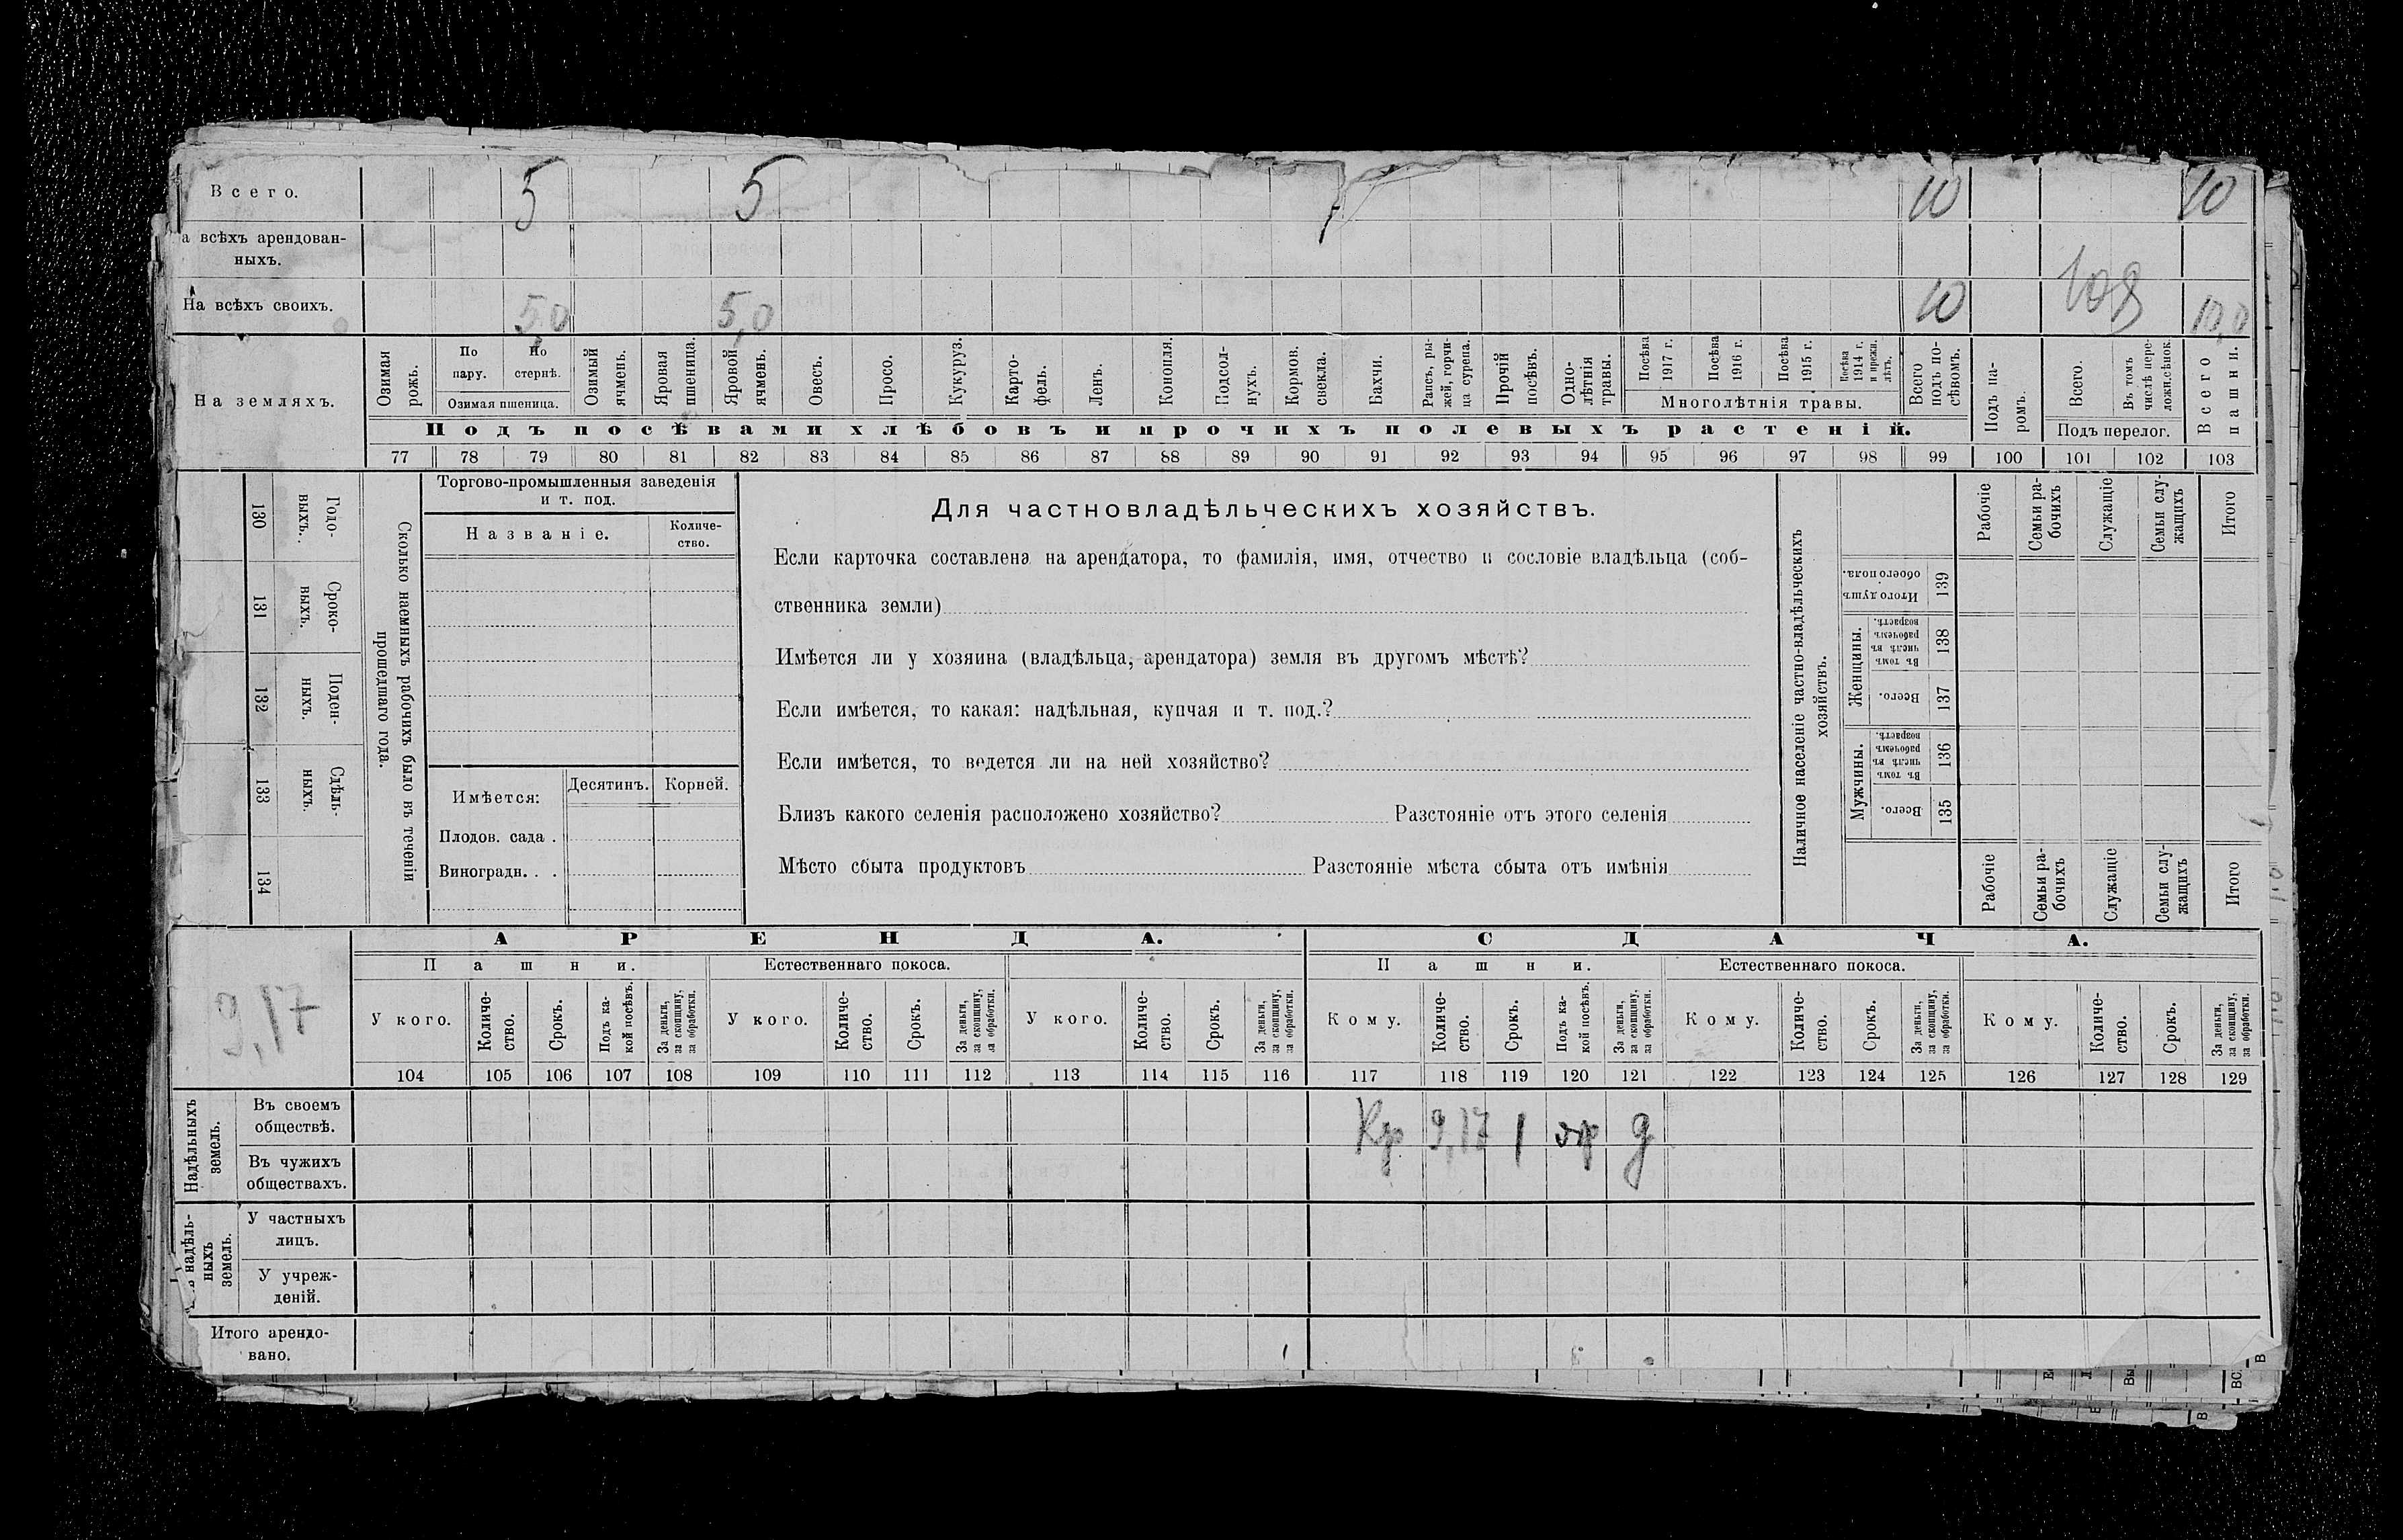 Всего. 5 5 10 10
а всѣхъ арендован-
ныхъ.
На всѣхъ своихъ. 5,0 5,0 10 10,0
На земляхъ.
Озимая рожь. По пару. По стернѣ. Озимый ячмень. Яровая пшеница. Яровой ячмень. Овесъ. Просо. Кукуруз. Карто-фель. Ленъ. Конопля. Подсол-нухъ. Кормов. свекла. Бахчи. Рапсъ, ры-жей, горчи-ца сурепа. Прочій посѣвъ. Одно-лѣтнія травы. Посѣва 1917 г. Посѣва 1916 г. Посѣва 1915 г. Посѣва 1914 г. и прежн. лѣтъ. Всего подъ по-сѣвомъ. Подъ па-ромъ. Всего. Въ томъ числѣ пере-ложн.сѣнок. Всего пашни.
Озимая пшеница. Многолѣтнія травы.
Подъ посѣвами хлѣбовъ и прочихъ полевыхъ растеній. Подъ перелог.
77 78 79 80 81 82 83 84 85 86 87 88 89 90 91 92 93 94 95 96 97 98 99 100 101 102 103
Годо-выхъ. 130
Сроко-ныхъ. 131
Поден-ныхъ. 132
Сдѣль-ныхъ. 133
134
Сколько наемныхъ рабочихъ было въ теченіи
прошедшаго года.
Торгово-промышленныя заведенія
и т. под.
Названіе. Количе-ство.
Имѣется: Десятинъ. Корней.
Плодов. сада .
Виноградн. . .
Для частновладѣльческихъ хозяйствъ.
Если карточка составлена на арендатора, то фамилія, имя, отчество и сословіе владѣльца (соб-
ственника земли)
Имѣется ли у хозяина (владѣльца, арендатора) земля въ другомъ мѣстѣ?
Если имѣется, то какая: надѣльная, купчая и т. под.?
Если имѣется, то ведется ли на ней хозяйство?
Близъ какого селенія расположено хозяйство? Разстояніе отъ этого селенія
Мѣсто сбыта продуктовъ Разстояніе мѣста сбыта отъ имѣнія
Наличное населеніе частно-владѣльческихъ
хозяйствъ.
Рабочіе Семьи ра-бочихъ Служащіе Семьи слу-жащихъ Итого
Итого душъ обоего пола. 139
Женщины. Въ томъ числѣ въ рабочемъ возрастѣ. 138
Всего. 137
Мужчины. Въ томъ числѣ въ рабочемъ возрастѣ. 136
Всего. 135
Рабочіе Семьи ра-бочихъ Служащіе Семьи слу-жащихъ Итого
9,17
АРЕНДА. СДАЧА.
Пашни. Естественнаго покоса. Пашни. Естественнаго покоса.
У кого. Количе-ство. Срокъ. Подъ ка-кой посѣвъ. За деньги, за скопщину, за обработки. У кого. Количе-ство. Срокъ. За деньги, за скопщину, за обработки. У кого. Количе-ство. Срокъ. За деньги, за скопщину, за обработки. Кому. Количе-ство. Срокъ. Подъ ка-кой посѣвъ. За деньги, за скопщину, за обработки. Кому. Количе-ство. Срокъ. За деньги, за скопщину, за обработки. Кому. Количе-ство. Срокъ. За деньги, за скопщину, за обработки.
104 105 106 107 108 109 110 111 112 113 114 115 116 117 118 119 120 121 122 123 124 125 126 127 128 129
Надѣльныхъ земель.
Въ своемъ
обществѣ. Кр 9,17 1 д
Въ чужихъ
обществахъ.
надѣль-ныхъ земель.
У частныхъ
лицъ.
У учреж-
деній.
Итого арендо-
вано.